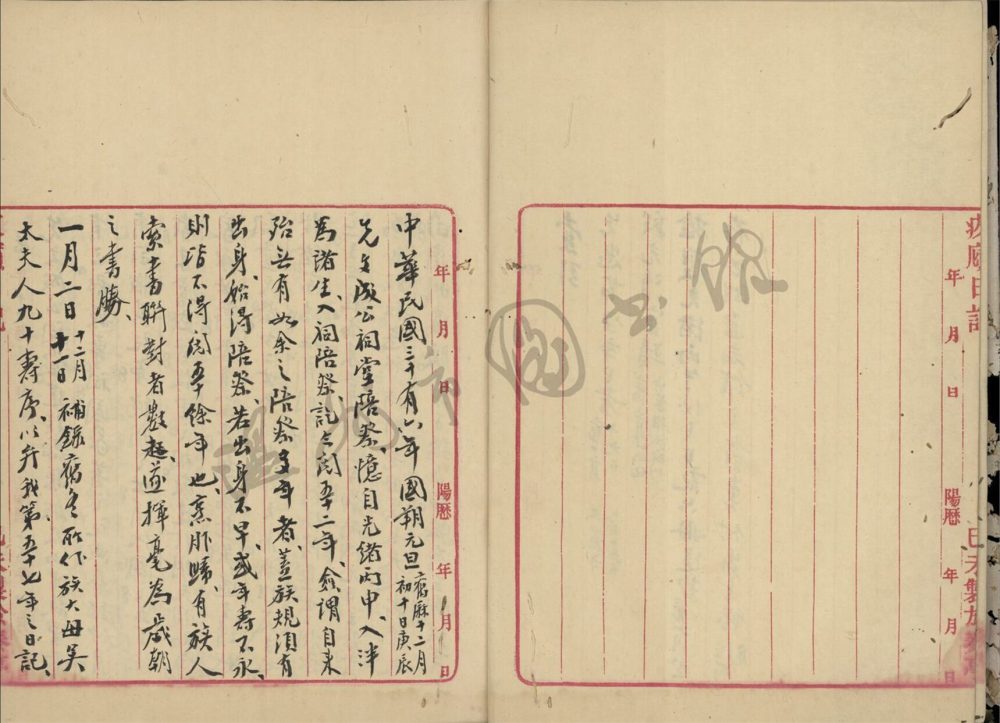 年 月 日
陽曆 年 月 日
年 月 日 陽曆 年 月 日
中華民國三十有六年國朔元旦 舊厤十二月初十日庚辰
先文成公祠堂陪祭、憶自光緒丙申、入泮
為諸生、入祠陪祭、訖今閱五十二年、僉謂自來
殆無有如余之陪祭多年者、蓋族規須有
出身、始得陪祭、若出身不早、或年壽不永、
則皆不得閱五十餘年也、烹胙歸、有族人
索書聯對者數起、遂揮毫為歲朝
之書勝、
一月二日 十二月十一日 補錄舊冬所作族大母吳
太夫人九十壽序、以弁我第五十七年之日記、
溫州市圖書館